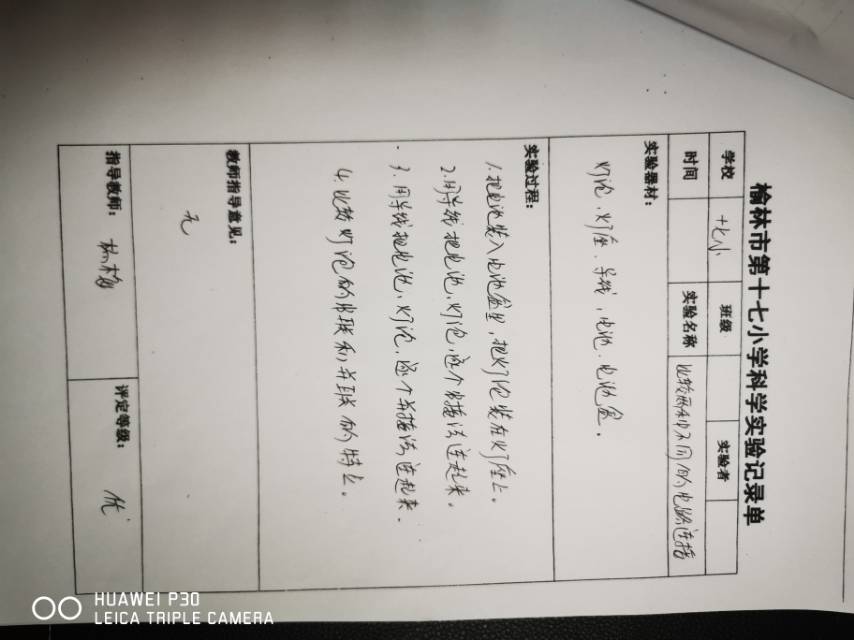 榆林市第十七小学科学实验记录单
学校 十七小 班级 实验者
时间 实验名称 比较两种不同的电路连接
实验器材：
灯泡、灯座、导线、电池、电池盒。
实验过程：
1.把电池装入电池盒里，把灯泡装在灯座上。
2.用导线把电池，灯泡，逐个串接法连起来。
3.用导线把电池，灯泡，逐个并接法连起来。
4.比较灯泡的串联和并联的特点。
教师指导意见：
无
指导教师： 评定等级： 优
HUAWEI P30
LEICA TRIPLE CAMERA